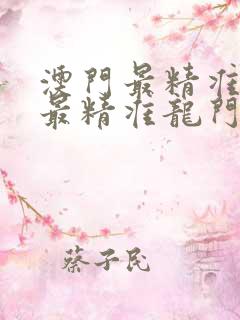 澳門最精准
最精准龍門
蔡子民